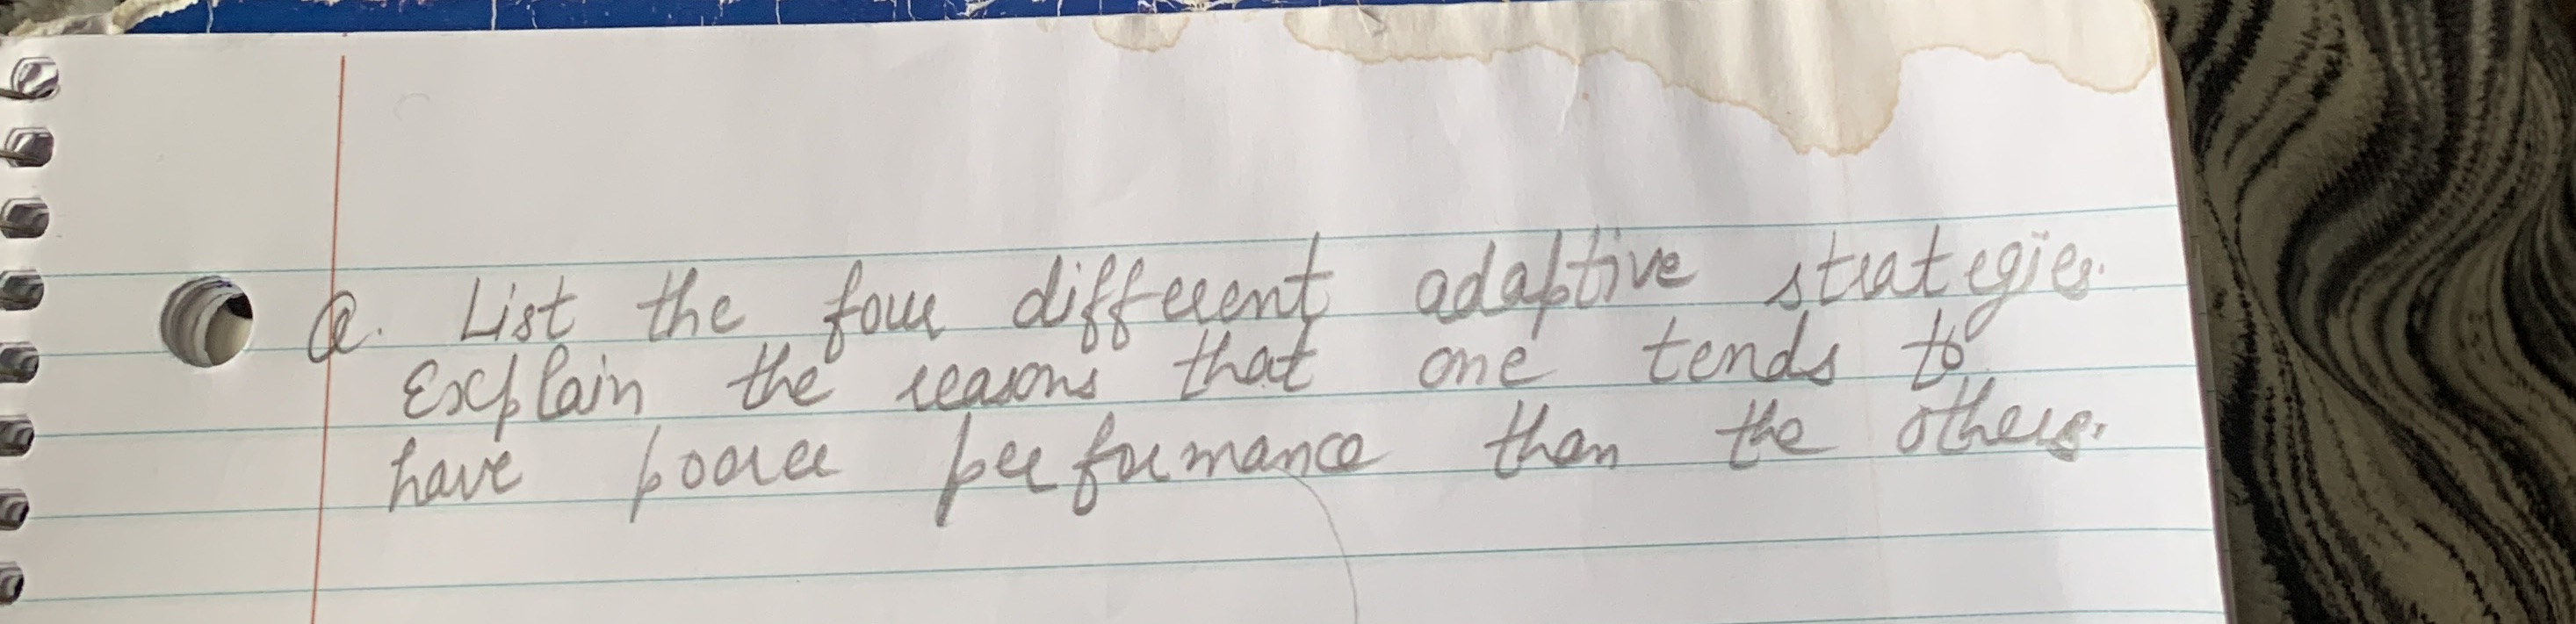 Q. List the four different adaptive strategies.
Explain the reasons that one tends to
have poorer performance than the others.